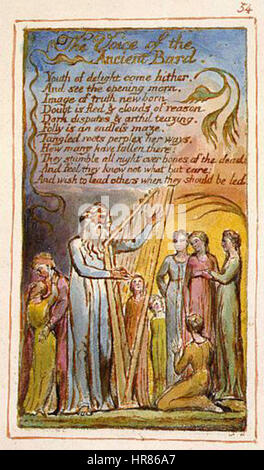 54
The Voice of the
Ancient Bard.
Youth of delight come hither.
And see the opening morn.
Image of truth new born.
Doubt is fled & clouds of reason.
Dark disputes & artful teazing.
Folly is an endless maze.
Tangled roots perplex her ways.
How many have fallen there!
They stumble all night over bones of the dead:
And feel they know not what but care:
And wish to lead others when they should be led.
alamy
Image ID: HR86A7
www.alamy.com